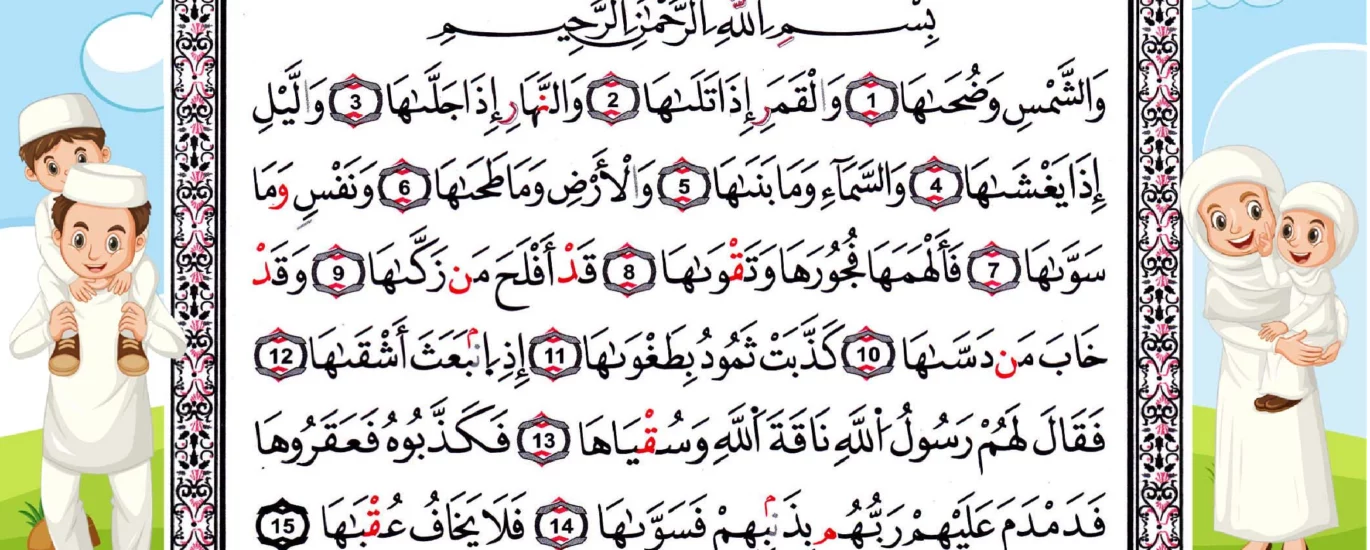 بِسْمِ اللَّهِ الرَّحْمَٰنِ الرَّحِيمِ
وَالشَّمْسِ وَضُحَىٰهَا 1 وَالْقَمَرِ إِذَا تَلَىٰهَا 2 وَالنَّهَارِ إِذَا جَلَّىٰهَا 3 وَالَّيْلِ
إِذَا يَغْشَىٰهَا 4 وَالسَّمَآءِ وَمَا بَنَىٰهَا 5 وَالْأَرْضِ وَمَا طَحَىٰهَا 6 وَنَفْسٍ وَمَا
سَوَّىٰهَا 7 فَأَلْهَمَهَا فُجُورَهَا وَتَقْوَىٰهَا 8 قَدْ أَفْلَحَ مَن زَكَّىٰهَا 9 وَقَدْ
خَابَ مَن دَسَّىٰهَا 10 كَذَّبَتْ ثَمُودُ بِطَغْوَىٰهَا 11 إِذِ انۢبَعَثَ أَشْقَىٰهَا 12
فَقَالَ لَهُمْ رَسُولُ اللَّهِ نَاقَةَ اللَّهِ وَسُقْيَاهَا 13 فَكَذَّبُوهُ فَعَقَرُوهَا
فَدَمْدَمَ عَلَيْهِمْ رَبُّهُم بِذَنۢبِهِمْ فَسَوَّىٰهَا 14 فَلَا يَخَافُ عُقْبَىٰهَا 15